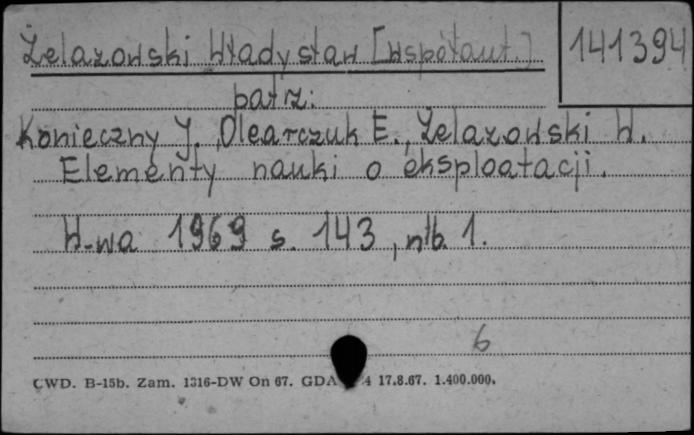 Żelazowski Władysław [współaut.] 141394
patrz:
Konieczny J., Olearczuk E., Żelazowski W.
Elementy nauki o eksploatacji.
W-wa 1969 s. 143, nlb. 1.
6
CWD. B-15b. Zam. 1316-DW On 67. GDA 4 17.8.67. 1.400.000.